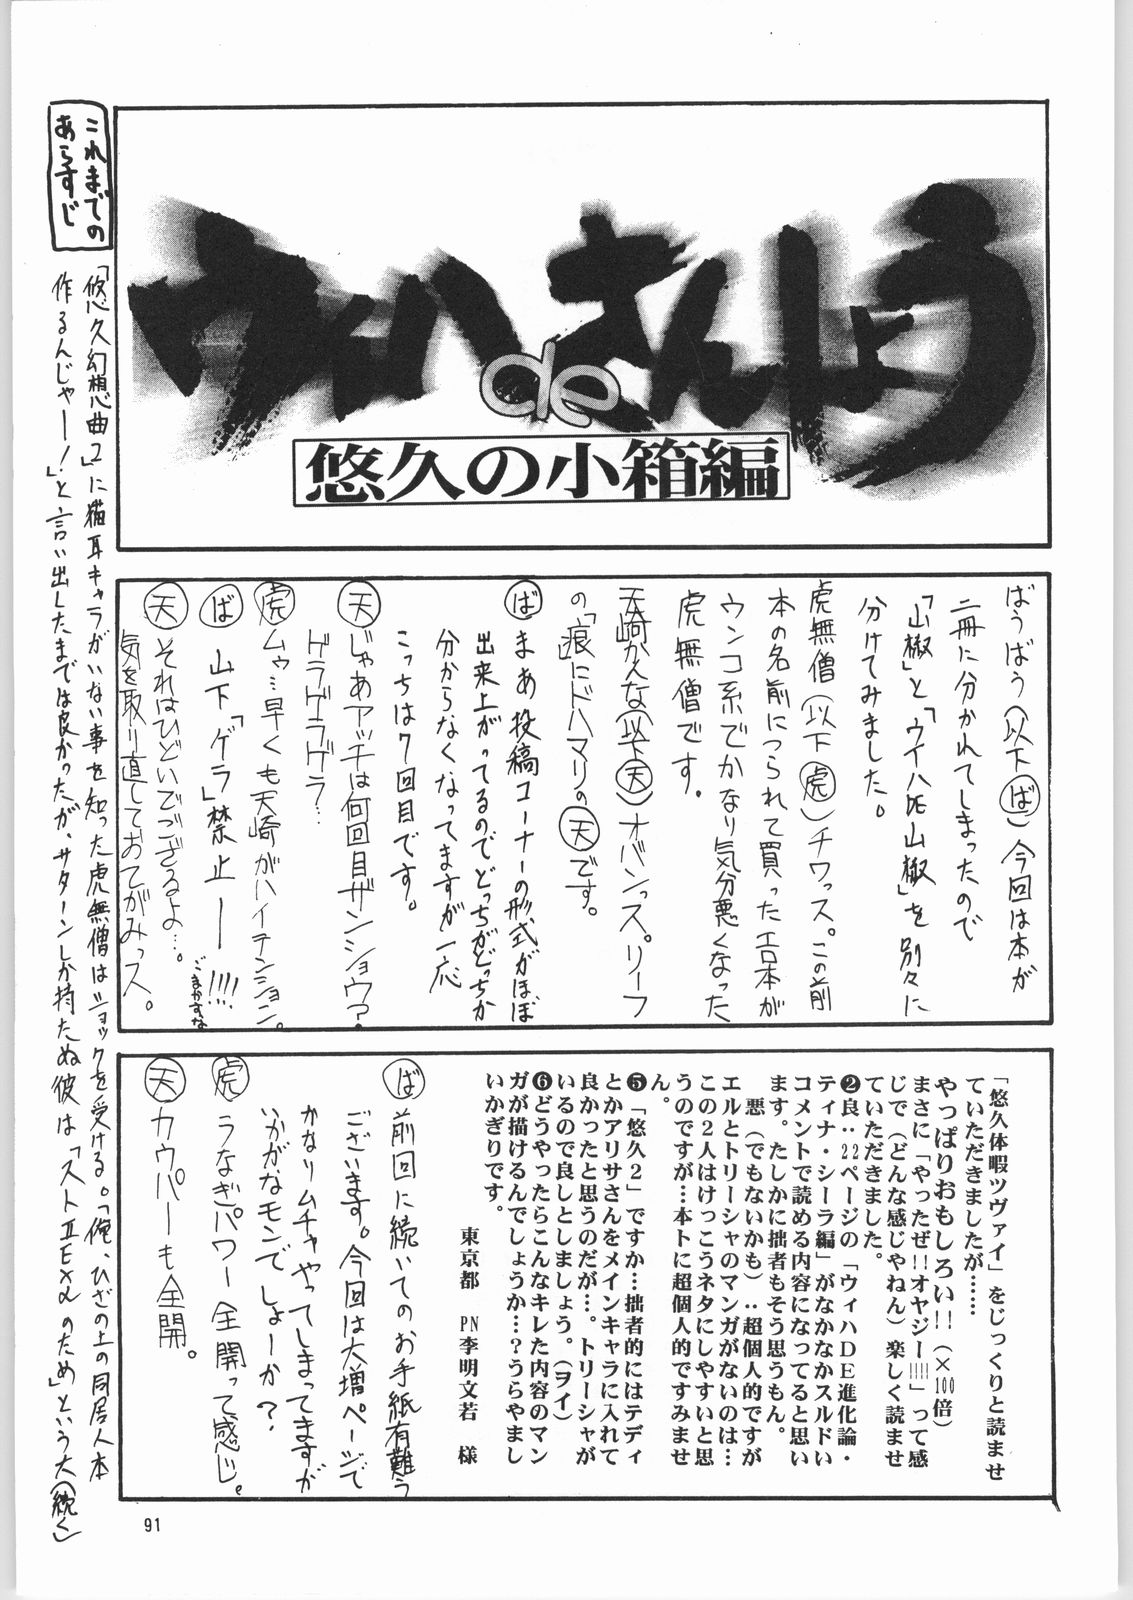 これまでの
あらすじ
「悠久幻想曲2」に猫耳キャラがいない事を知った虎無僧はショックを受ける。「俺、ひざの上の同居人本
作るんじゃー！」と言い出したまでは良かったが、サターンしか持たぬ彼は「ストⅡEXαのため」という大(続く)
ウィハdeさんしょう
悠久の小箱編
ばうばう(以下ば)今回は本が
二冊に分かれてしまったので
「山椒」と「ウイハDE山椒」を別々に
分けてみました。
虎無僧(以下虎)チワっス。この前
本の名前につられて買ったエロ本が
ウンコ系でかなり気分悪くなった
虎無僧です。
天崎かえな(以下天)オバンっス。リーフ
の「痕」にドハマリの天です。
ば まあ投稿コーナーの形式がほぼ
出来上がってるのでどっちがどっちか
分からなくなってますが一応
こっちは7回目です。
天 じゃあアッチは何回目ザンショウ?
ゲラゲラゲラ…
虎 ムゥ…早くも天崎がハイテンション。
ば 山下「ゲラ」禁止ー!!!!
ごまかすな
天 それはひどいでござるよ…。
気を取り直しておてがみっス。
「悠久休暇ツヴァイ」をじっくりと読ませ
ていただきましたが……
やっぱりおもしろい!!(×100倍)
まさに「やったぜ!!オヤジー!!!!」って感
じで(どんな感じゃねん)楽しく読ませ
ていただきました。
❷良‥22ページの「ウィハDE進化論・
ティナ・シーラ編」がなかなかスルドい
コメントで読める内容になってると思い
ます。たしかに拙者もそう思うもん。
悪(でもないかも)‥超個人的ですが
エルとトリーシャのマンガがないのは…
この2人はけっこうネタにしやすいと思
うのですが…本トに超個人的ですみませ
ん。
❺「悠久2」ですか…拙者的にはテディ
とかアリサさんをメインキャラに入れて
良かったと思うのだが…。トリーシャが
いるので良しとしましょう。(ヲイ)
❻どうやったらこんなキレた内容のマン
ガが描けるんでしょうか…?うらやまし
いかぎりです。
東京都 PN李明文若 様
ば 前回に続いてのお手紙有難う
ございます。今回は大増ページで
かなりムチャやってしまってますが
いかがなモンでしょーか?
虎 うなぎパワー全開って感じ。
天 カウパーも全開。
91